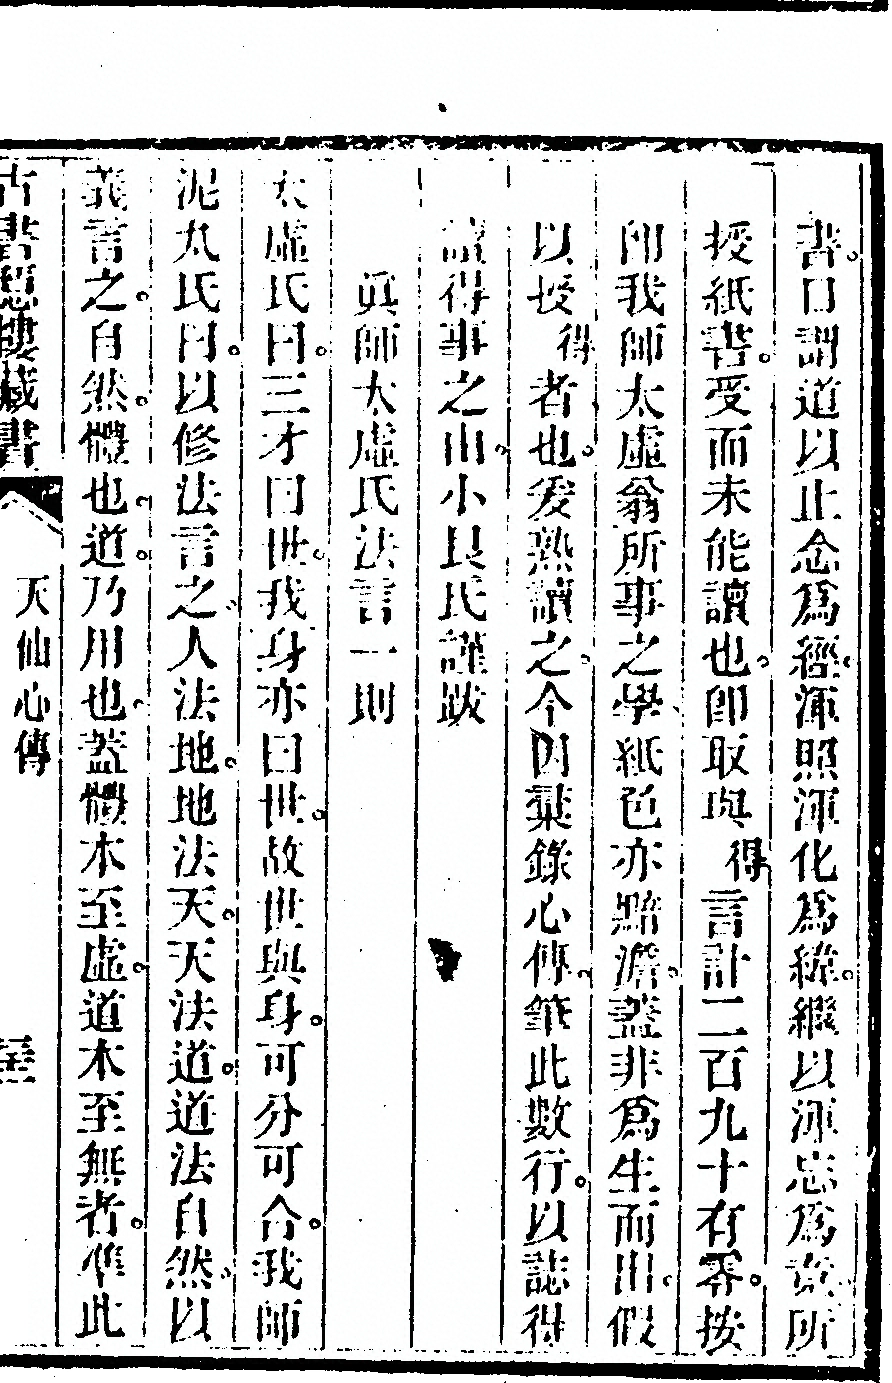 書曰謂道以止念爲經渾照渾化爲緯繼以渾忘爲宗所
授紙書受而未能讀也卽取與得言計二百九十有零按
卽我師太虛翁所事之學紙色亦黯澹蓋非爲生而出假
以授得者也爰熟讀之今因彙錄心傳筆此數行以誌得
讀得事之由小艮氏謹跋
眞師太虛氏法言一則
太虛氏曰三才曰世我身亦曰世故世與身可分可合我師
泥丸氏曰以修法言之人法地地法天天法道道法自然以
義言之自然體也道乃用也蓋體本至虛道本至無者準此
古書隱樓藏書
天仙心傳